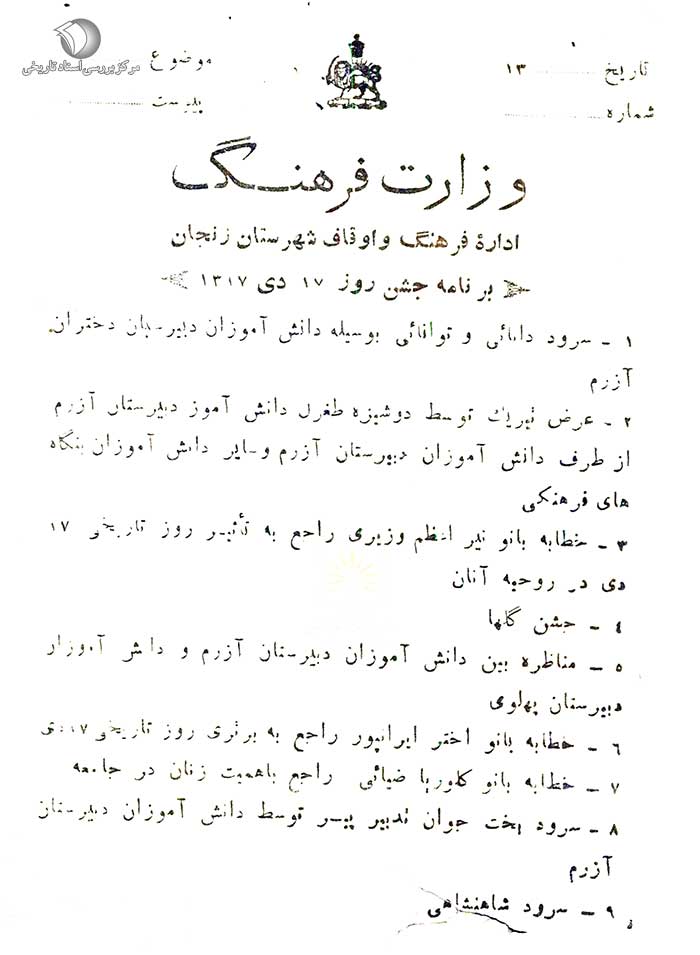 مرکز بررسی اسناد تاریخی
تاریخ ........ ۱۳
موضوع
شماره ........
پیوست ........
وزارت فرهنگ
ادارۀ فرهنگ و اوقاف شهرستان زنجان
برنامه جشن روز ۱۷ دی ۱۳۱۷
۱ - سرود دانائی و توانائی بوسیله دانش آموزان دبیرستان دختران
آزرم
۲ - عرض تبریك توسط دوشیزه طغرل دانش آموز دبیرستان آزرم
از طرف دانش آموزان دبیرستان آزرم وسایر دانش آموزان بنگاه
های فرهنگی
۳ - خطابه بانو نیر اعظم وزیری راجع به تأثیر روز تاریخی ۱۷
دی در روحیه آنان
٤ - جشن گلها
۵ - مناظره بین دانش آموزان دبیرستان آزرم و دانش آموزان
دبیرستان پهلوی
٦ - خطابه بانو اختر ایرانپور راجع به برتری روز تاریخی ۱۷ دی
۷ - خطابه بانو ضیائی راجع باهمیت زنان در جامعه
۸ - سرود بخت جوان تدبیر پیر توسط دانش آموزان دبیرستان
آزرم
۹ - سرود شاهنشاهی